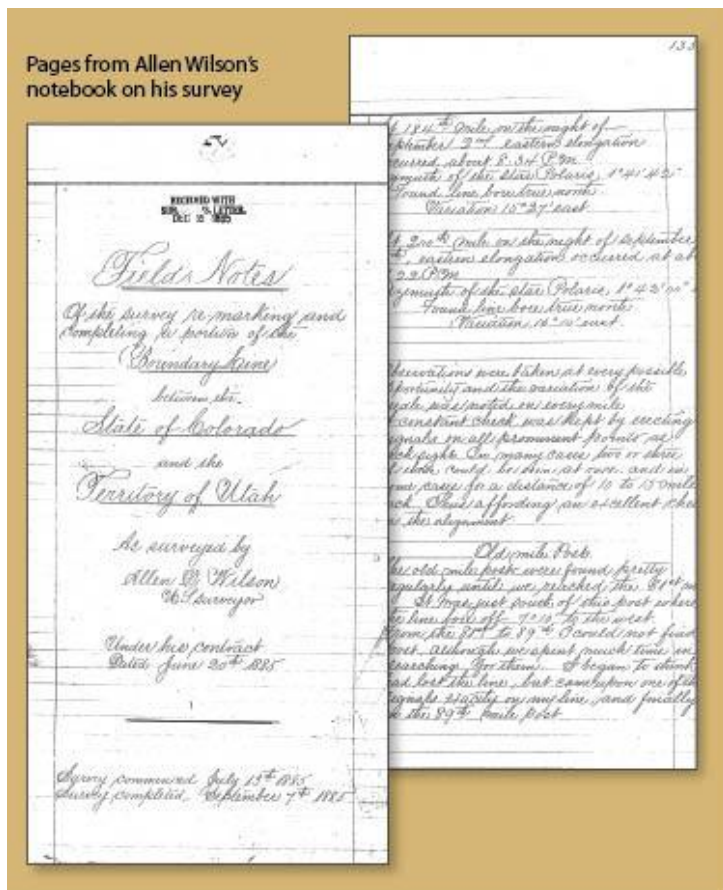 Pages from Allen Wilson's
notebook on his survey
RECEIVED WITH
LETTER
DEC 12 1885
Field Notes
Of the survey re marking and
completing a portion of the
Boundary Line
between the
State of Colorado
and the
Territory of Utah
As surveyed by
Allen D. Wilson
US surveyor
Under his contract
Dated June 20th 1885
Survey commenced July 13th 1885
Survey completed, September 7th 1885
133
184th mile on the night of
eastern elongation
occurred about 8.34 P.M.
of the star Polaris, 1° 41' 42"
Found line bore true north
Variation 15° 27' east
200th mile on the night of September
eastern elongation occurred at
22 P.M
of the star Polaris, 1° 42' 00"
Found line bore true north
Variation 16° 10' east.
observations were taken at every possible
opportunity and the variation of the
was noted on every mile
constant check was kept by erecting
signals on all prominent points as
sights. In many cases two or three
of could be seen at once and in
cases for a distance of 10 to 15 mile
Thus affording an excellent
the alignment
Old mile Posts
The old mile posts were found pretty
regularly until we reached the 81st
It was just south of this post where
the line bore off 7° 10' to the west.
From the to 89th I could not find
post, although we spent much time in
searching for them. I began to think
had lost the line, but came upon one of
signals exactly on my line, and finally
the 89th mile post